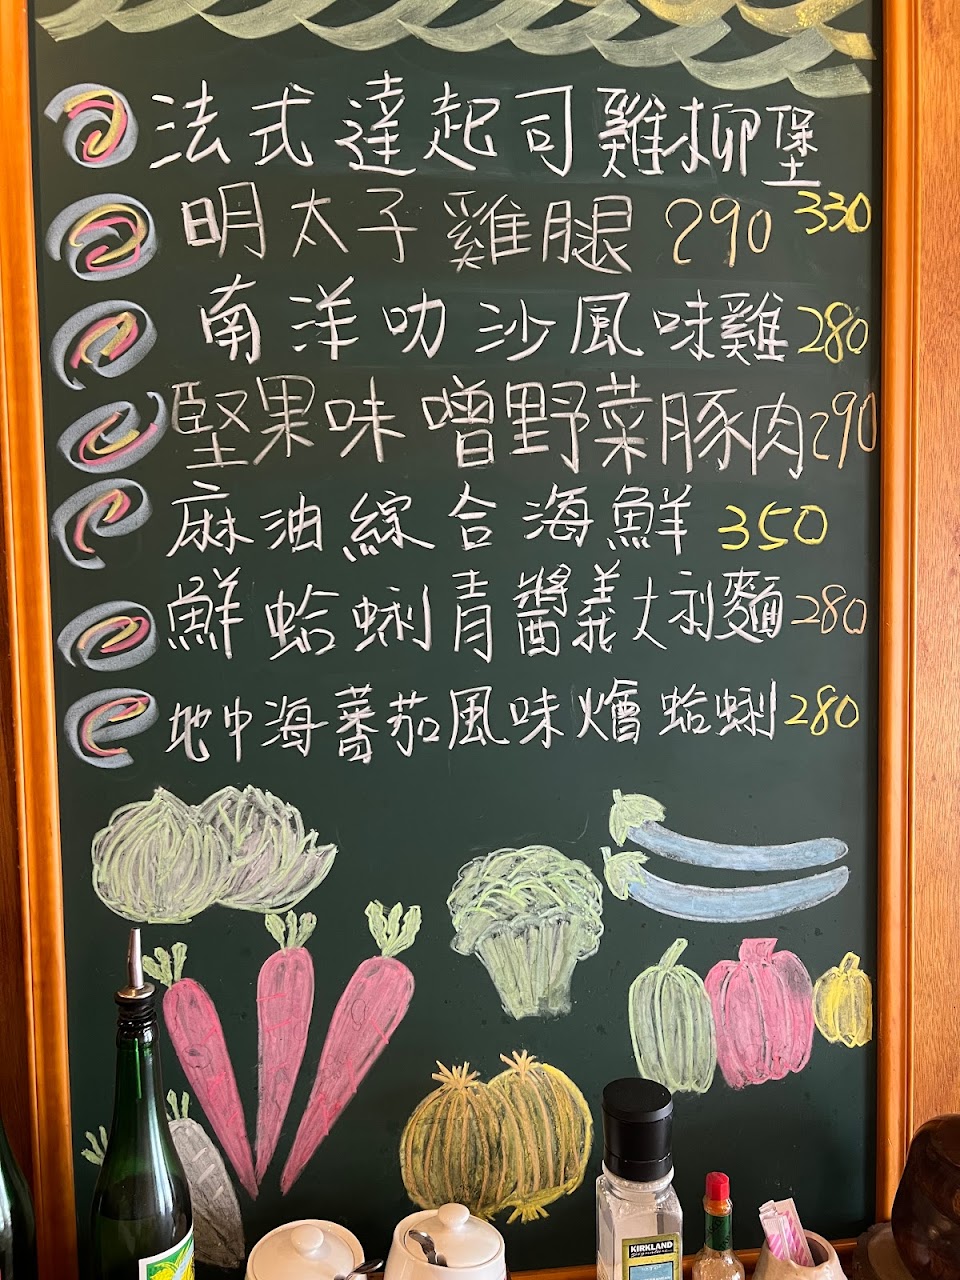 法式達起司雞柳堡 330
明太子雞腿 290
南洋叻沙風味雞 280
堅果味噌野菜豚肉 290
麻油綜合海鮮 350
鮮蛤蜊青醬義大利麵 280
地中海蕃茄風味燴蛤蜊 280
KIRKLAND